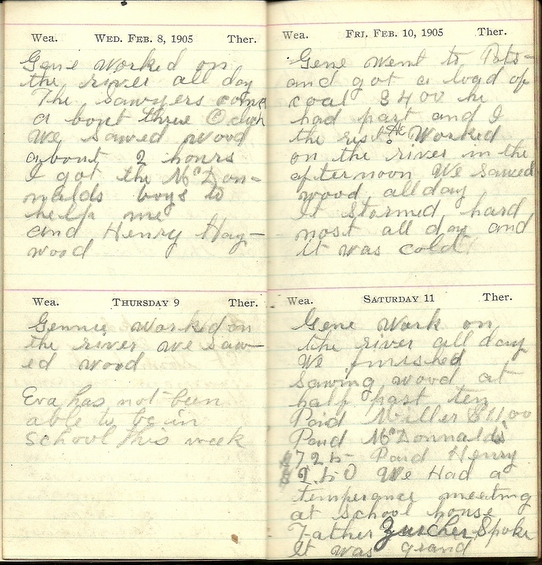 Wea. WED. FEB. 8, 1905 Ther.
Gene worked on
the river all day
The sawyers come
a bout three O clock
We sawed wood
about 2 hours
I got the McDon-
nalds boys to
help me
and Henry Hay-
wood
Wea. THURSDAY 9 Ther.
Gennie worked on
the river we saw-
ed wood
Eva has not been
able to be in
school this week
Wea. FRI. FEB. 10, 1905 Ther.
Gene went to Pots-
and got a load of
coal 3400 he
had part and I
the rest He Worked
on the river in the
afternoon We sawed
wood all day
It stormed hard
most all day and
it was cold
Wea. SATURDAY 11 Ther.
Gene Work on
the river all day
We finished
sawing wood at
half past ten
Paid Miller
Paid McDonnalds
Paid Henry
We Had a
temperance meeting
at school house
Father Zurcher Spoke
It was grand